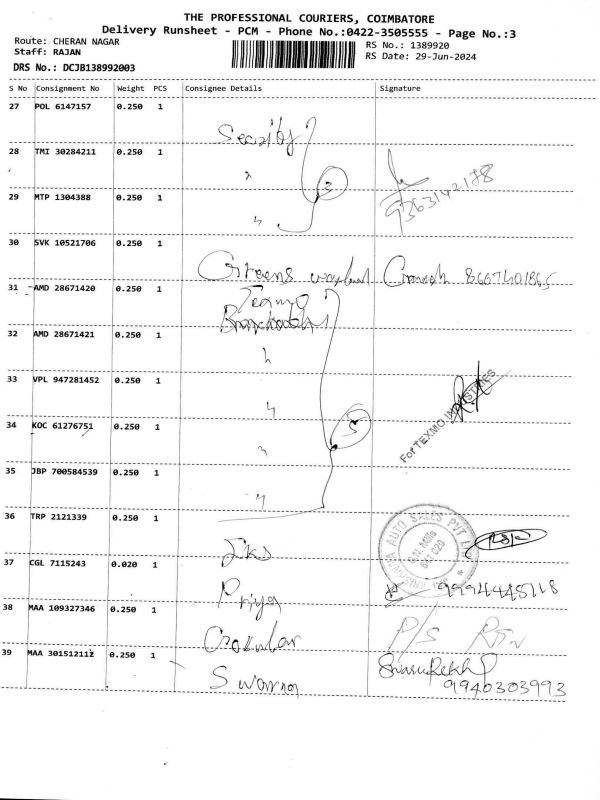 THE PROFESSIONAL COURIERS, COIMBATORE
Delivery Runsheet - PCM - Phone No.:0422-3505555 - Page No.:3
Route: CHERAN NAGAR
RS No.: 1389920
Staff: RAJAN
RS Date: 29-Jun-2024
DRS No.: DCJB138992003
S No Consignment No Weight PCS Consignee Details Signature
27 POL 6147157 0.250 1
Security
28 TMI 30284211 0.250 1
3
9363142178
29 MTP 1304388 0.250 1
30 SVK 10521706 0.250 1
Greens Ganesh 8667401865
31 AMD 28671420 0.250 1
Texmo
32 AMD 28671421 0.250 1
33 VPL 947281452 0.250 1
34 KOC 61276751 0.250 1
5
For TEXMO INDUSTRIES
35 JBP 700584539 0.250 1
36 TRP 2121339 0.250 1
AUTO SALES PVT LTD
G.N. Mills
37 CGL 7115243 0.020 1
Priya
9994445718
38 MAA 109327346 0.250 1
P/S
39 MAA 301512112 0.250 1
Swarna
9940303993